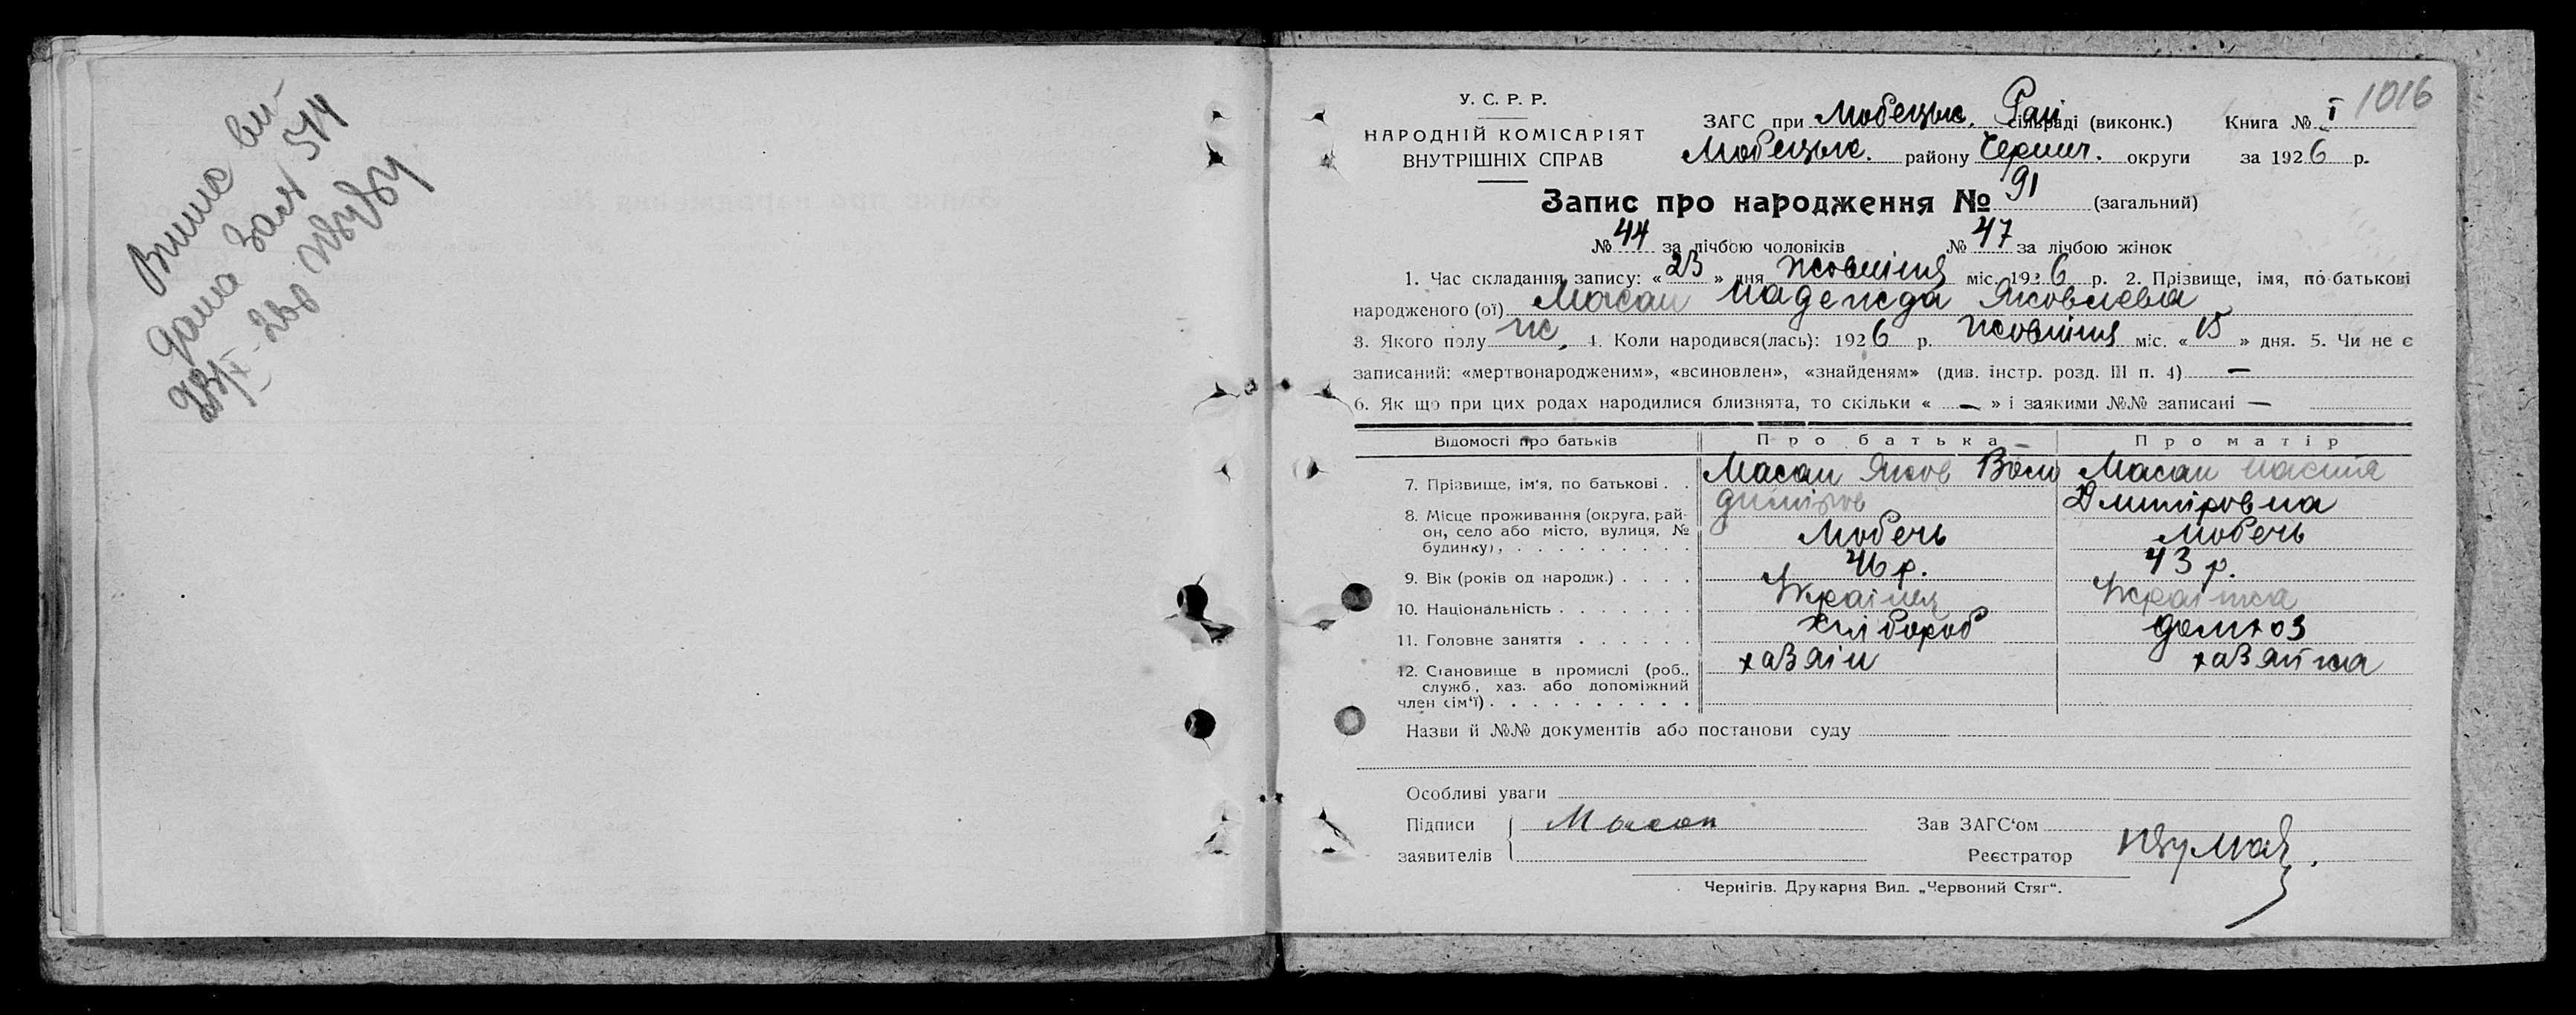 Випис ви-
дана
23/X-26р
1016
У. С. Р. Р.
НАРОДНІЙ КОМІСАРІЯТ
ВНУТРІШНІХ СПРАВ
ЗАГС при Любецьк. Рай сільраді (виконк.) Книга № I
Любецьк. району Черниг. округи за 1926 р.
Запис про народження № 91 (загальний)
№ 44 за лічбою чоловіків № 47 за лічбою жінок
1. Час складання запису: «23» дня жовтня міс. 1926 р. 2. Прізвище, імя, по-батькові
народженого (ої) Масан Надежда Яковлевна
3. Якого полу ж, 4. Коли народився(лась): 1926 р. жовтня міс. «15» дня. 5. Чи не є
записаний: «мертвонародженим», «всиновлен», «знайденям» (див. інстр. розд. III п. 4) —
6. Як що при цих родах народилися близнята, то скільки « — » і заякими №№ записані —
Відомості про батьків Про батька Про матір
7. Прізвище, ім'я, по батькові . . Масан Яков Воло Масан Настя
димиров Дмитровна
8. Місце проживання (округа, рай-
он, село або місто, вулиця, №
будинку), . . . . . . . . . Любечь Любечь
9. Вік (років од народж.) . . . . 46 р. 43 р.
10. Національність . . . . . . . Українец Українка
11. Головне заняття . . . . . . хлібороб домхоз
12. Становище в промислі (роб., хазяїн хазяйка
служб., хаз. або допоміжний
член сім'ї) . . . . . . . . . .
Назви й №№ документів або постанови суду
Особливі уваги
Підписи Масан Зав ЗАГС'ом
заявителів Реєстратор
Чернігів. Друкарня Вид. „Червоний Стяг".